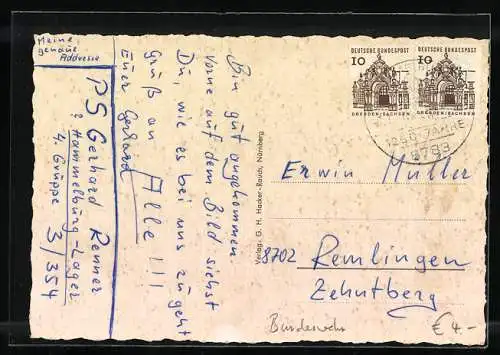 Meine
genaue
Addresse
PS Gerhard Renner
Hammelburg-Lager
4. Gruppe 3/354
Bin gut angekommen
Vorne auf dem Bild siehst
Du, wie es bei uns zu geht
Gruß an Alle !!!
Euer Gerhard
Verlag G. H. Hacker-Rauch, Nürnberg
DEUTSCHE BUNDESPOST
10
DRESDEN/SACHSEN
DEUTSCHE BUNDESPOST
10
DRESDEN/SACHSEN
JAHRE
8783
Erwin Müller
8702 Remlingen
Zehntberg
Bundeswehr
€ 4-